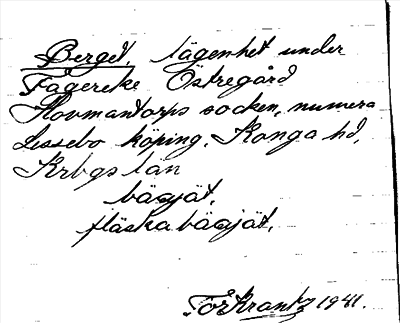 Berget, lägenhet under
Fågereke Östregård
Hovmantorps socken, numera
Lessebo köping, Konga hd,
Krbgs län
bägjät,
fläskabägjät,
Tor Krantz 1941.